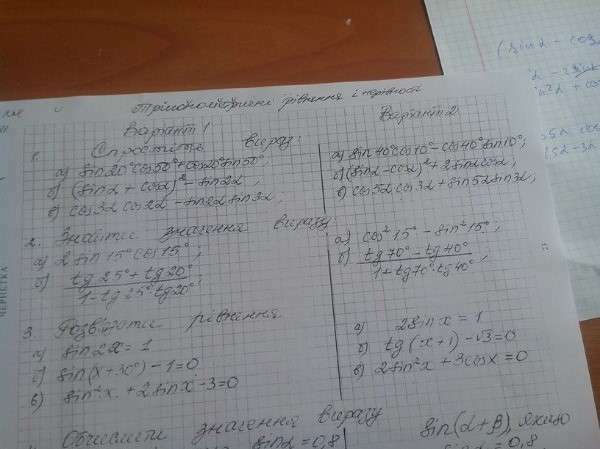 Тригонометричні рівняння і нерівності
Варіант 1
1. Спростити вираз:
а) sin20°cos50°+cos20°sin50°;
б) (sinα + cosα)² - sin2α;
в) cos3α cos2α - sin2α sin3α;
2. Знайти значення виразу
а) 2 sin 15° cos 15°;
б) (tg 25° + tg 20°)/(1 - tg 25° tg 20°);
3. Розв'язати рівняння
а) sin2x = 1
б) sin(x + 30°) - 1 = 0
в) sin²x + 2 sin x - 3 = 0
Обчислити значення виразу
sinα = 0,8
Варіант 2
а) sin 40° cos 10° - cos 40° sin 10°;
б) (sinα - cosα)² + 2 sinα cosα;
в) cos5α cos3α + sin5α sin3α;
а) cos² 15° - sin² 15°;
б) (tg 70° - tg 40°)/(1 + tg 70° tg 40°);
а) 2 sin x = 1
б) tg (x + 1) - √3 = 0
в) 2 sin²x + 3 cos x = 0
sin(α + β), якщо
= 0,8